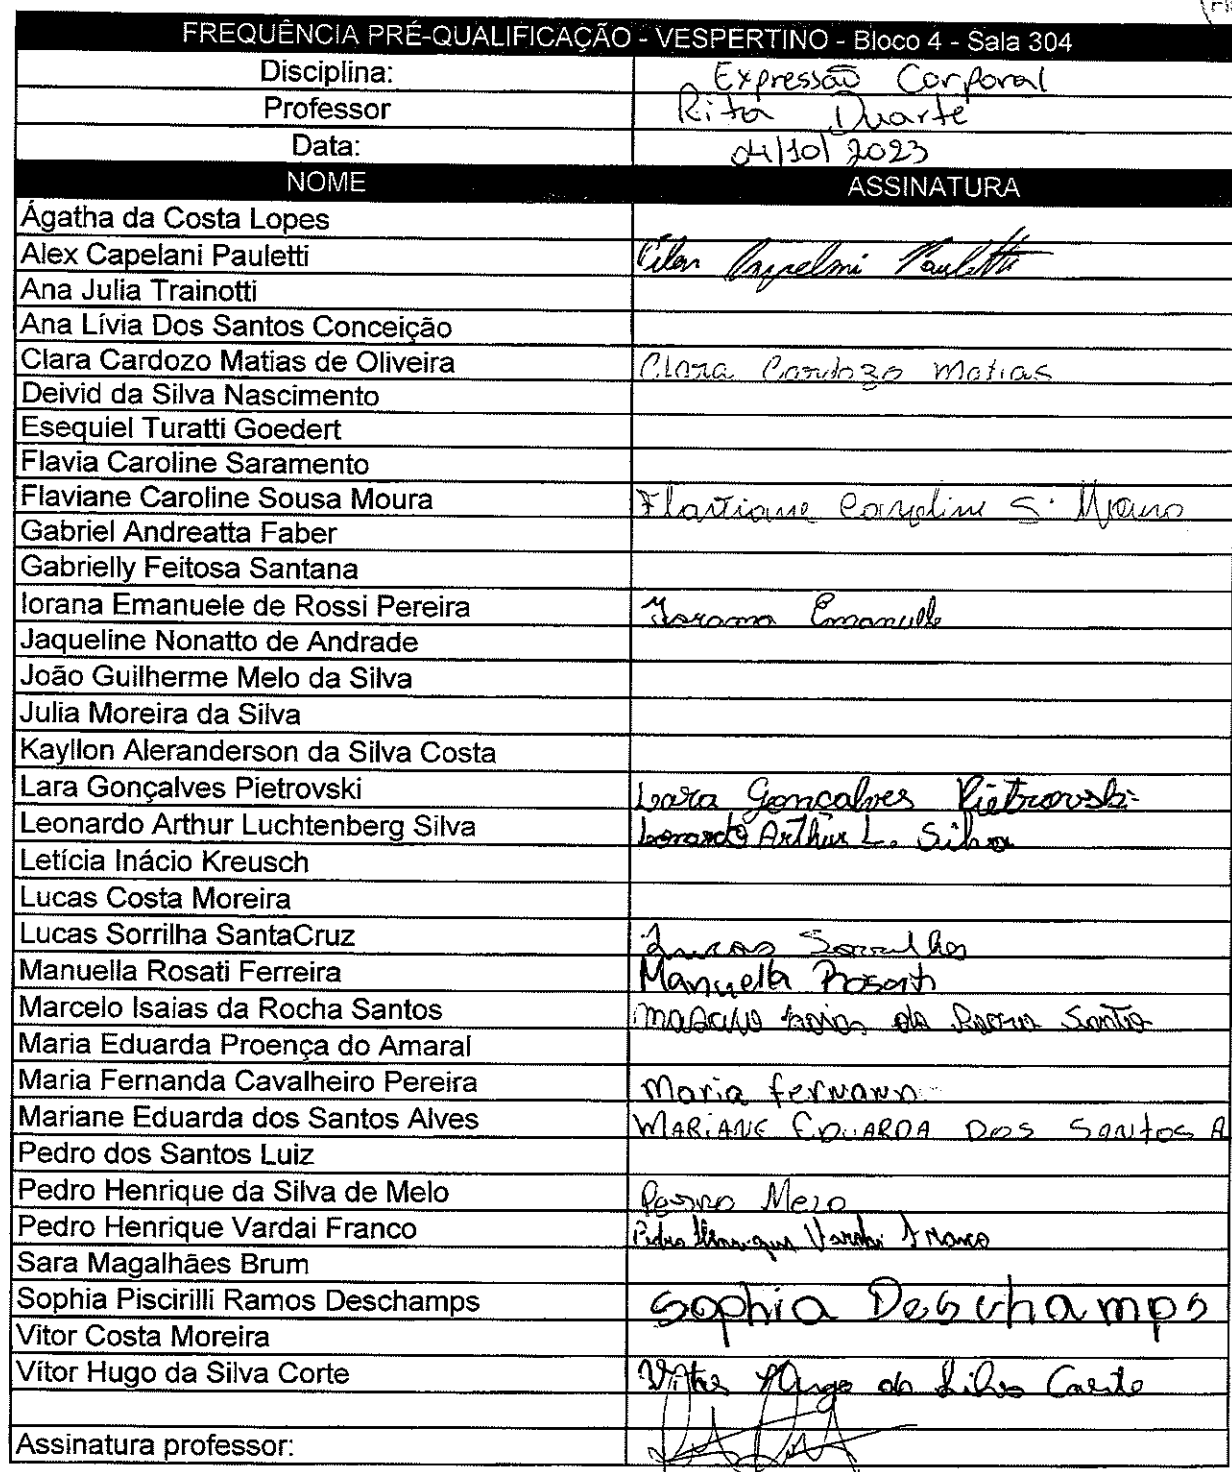 FREQUÊNCIA PRÉ-QUALIFICAÇÃO - VESPERTINO - Bloco 4 - Sala 304
Disciplina: Expressão Corporal
Professor Rita Duarte
Data: 04/10/2023
NOME ASSINATURA
Ágatha da Costa Lopes
Alex Capelani Pauletti Alex Capelani Pauletti
Ana Julia Trainotti
Ana Lívia Dos Santos Conceição
Clara Cardozo Matias de Oliveira Clara Cardozo Matias
Deivid da Silva Nascimento
Esequiel Turatti Goedert
Flavia Caroline Saramento
Flaviane Caroline Sousa Moura Flaviane Caroline S. Moura
Gabriel Andreatta Faber
Gabrielly Feitosa Santana
Iorana Emanuele de Rossi Pereira Iorana Emanuele
Jaqueline Nonatto de Andrade
João Guilherme Melo da Silva
Julia Moreira da Silva
Kayllon Aleranderson da Silva Costa
Lara Gonçalves Pietrovski Lara Gonçalves Pietrovski
Leonardo Arthur Luchtenberg Silva Leonardo Arthur L. Silva
Letícia Inácio Kreusch
Lucas Costa Moreira
Lucas Sorrilha SantaCruz Lucas Sorrilha
Manuella Rosati Ferreira Manuella Rosati
Marcelo Isaias da Rocha Santos Marcelo Isaias da Rocha Santos
Maria Eduarda Proença do Amaral
Maria Fernanda Cavalheiro Pereira Maria Fernanda
Mariane Eduarda dos Santos Alves MARIANE EDUARDA DOS SANTOS A
Pedro dos Santos Luiz
Pedro Henrique da Silva de Melo Pedro Melo
Pedro Henrique Vardai Franco Pedro Henrique Vardai Franco
Sara Magalhães Brum
Sophia Piscirilli Ramos Deschamps Sophia Deschamps
Vitor Costa Moreira
Vítor Hugo da Silva Corte Vítor Hugo da Silva Corte
Assinatura professor: